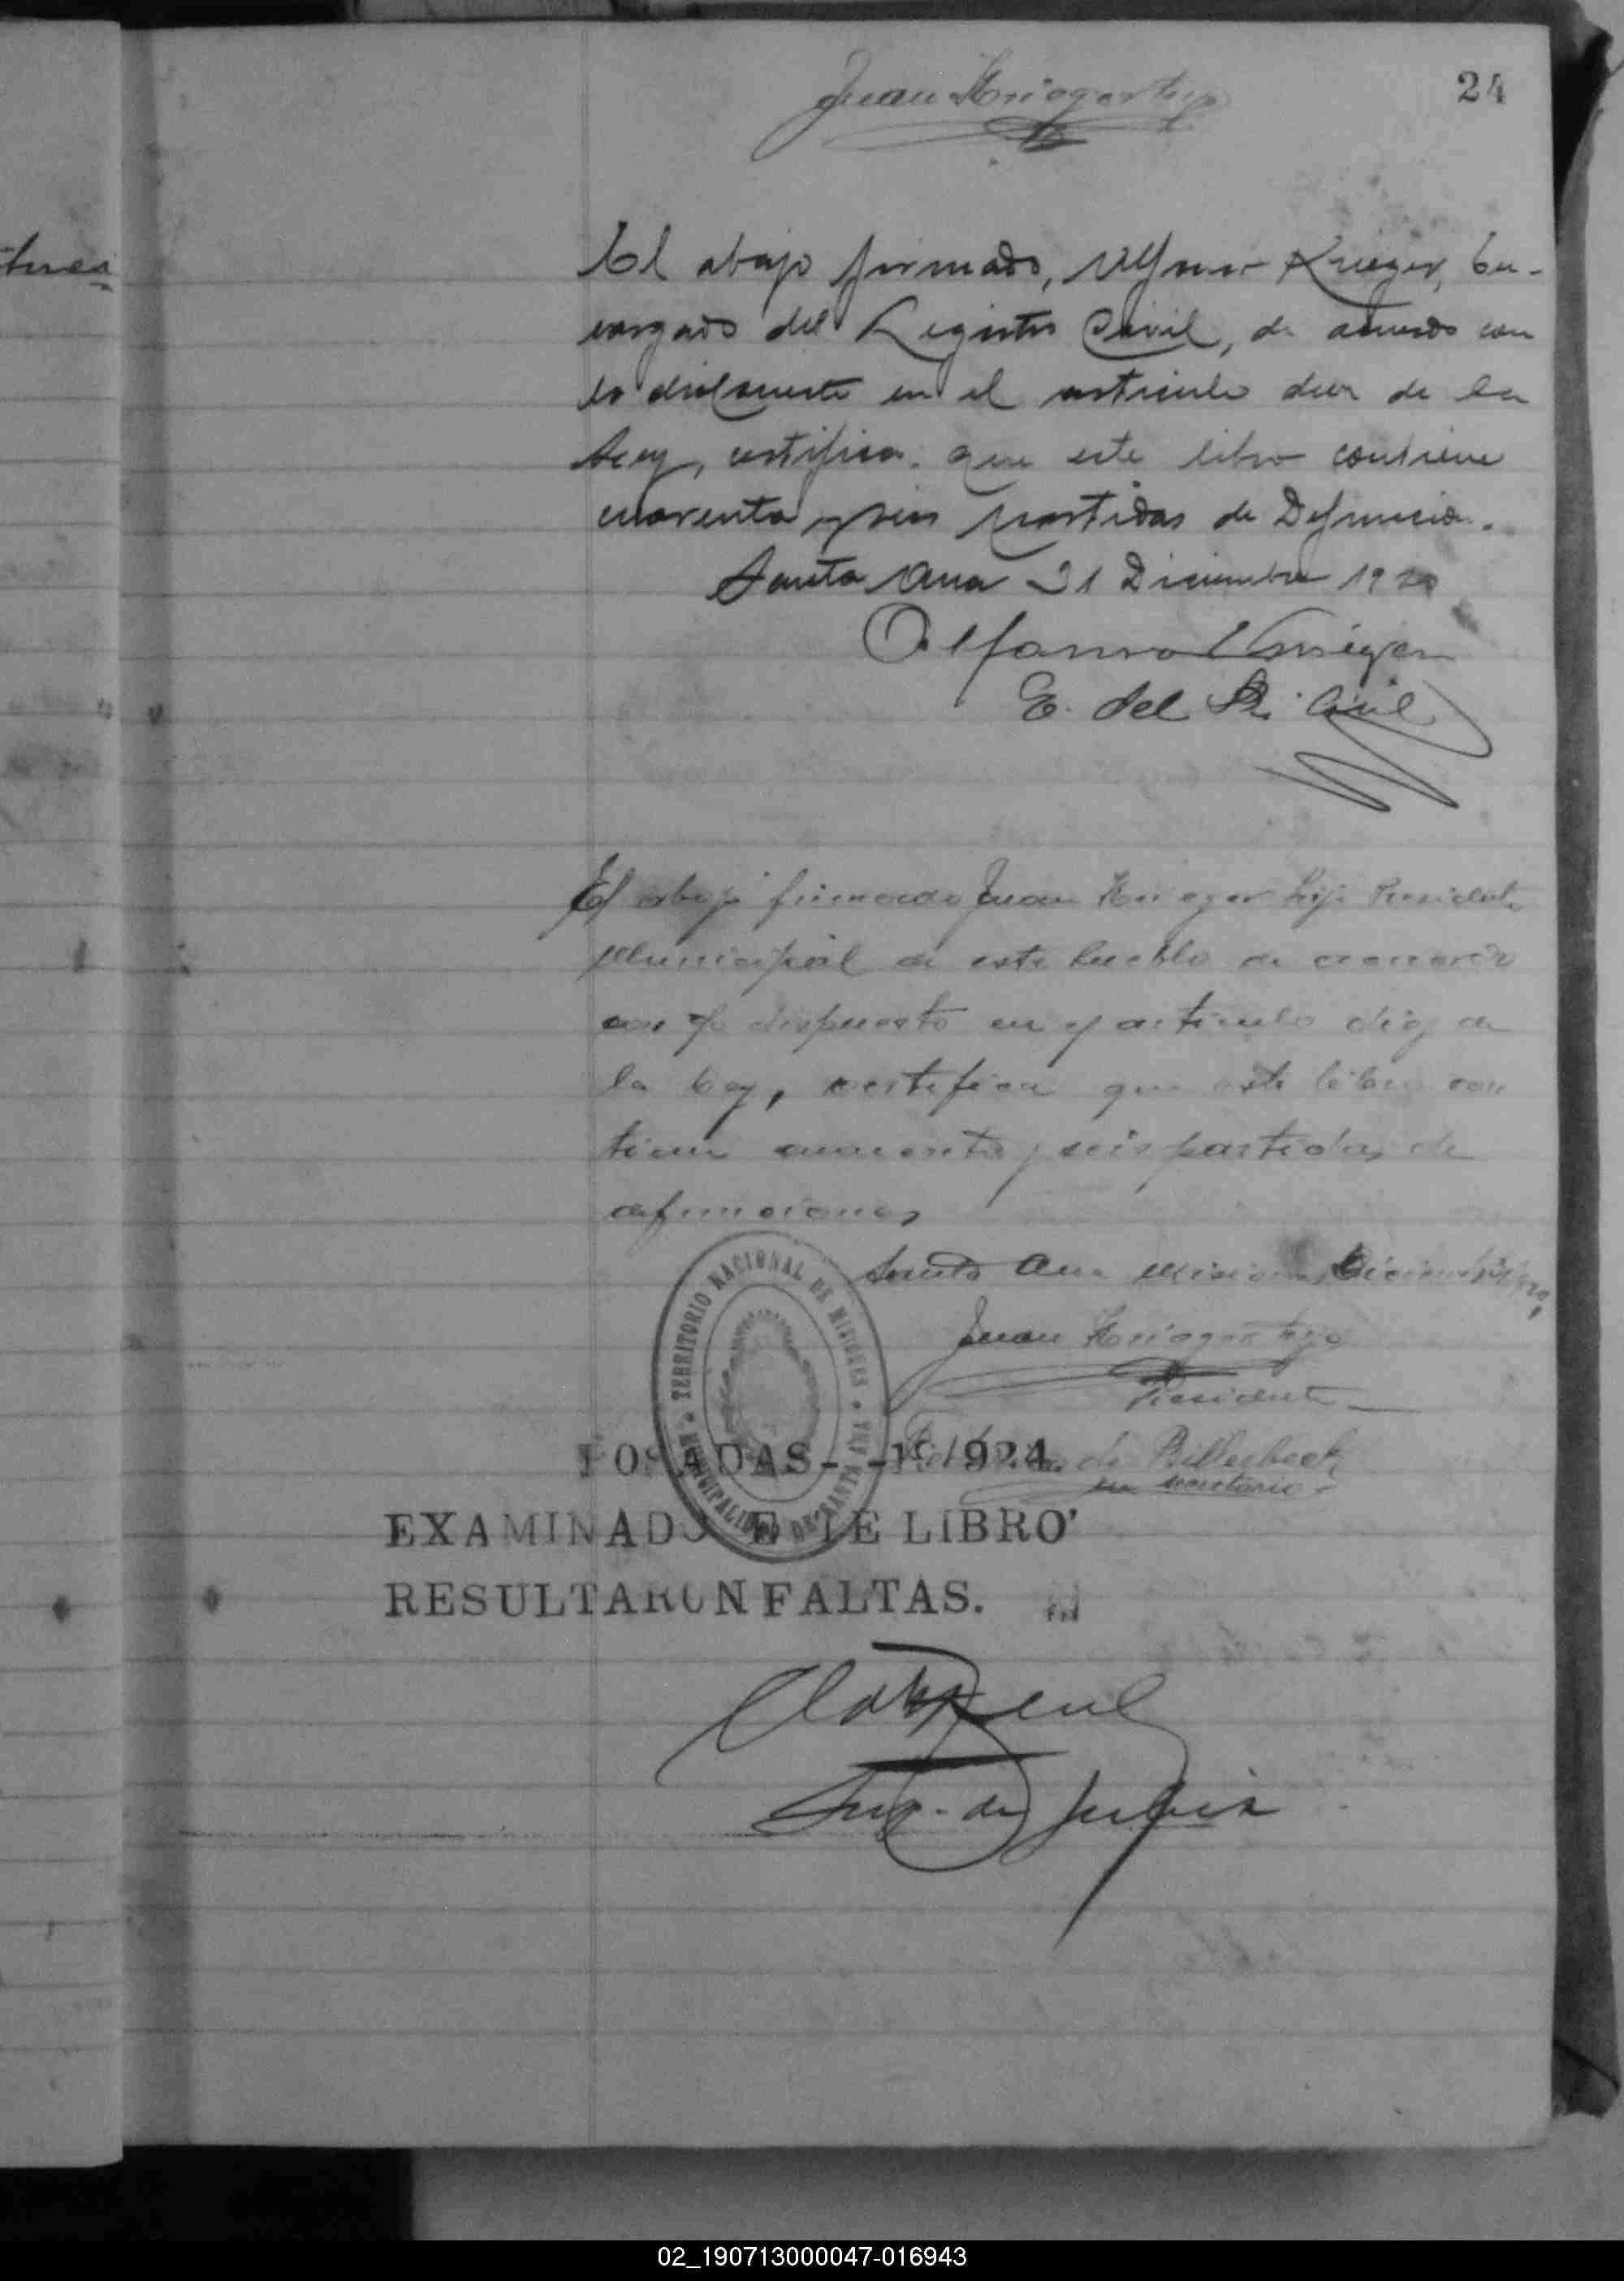 24
Juan Krieger hijo
El abajo firmado, Alfonso Krieger, En-
cargado del Registro Civil, de acuerdo con
lo dispuesto en el articulo diez de la
Ley, certifica que este libro contiene
cuarenta y seis partidas de Defuncion.
Santa Ana 31 Diciembre 1920
Alfonso Krieger
E. del R. Civil
El abajo firmado Juan Krieger hijo Presidente
Municipal de este Pueblo de acuerdo
con lo dispuesto en el articulo diez de
la Ley, certifica que este libro con
tiene cuarenta y seis partidas de
defunciones
Santa Ana Misiones Diciembre
Juan Krieger hijo
Presidente
de Billerbeck
secretario
TERRITORIO NACIONAL DE MISIONES
MUNICIPALIDAD DE SANTA ANA
POSADAS- -19 924.
EXAMINADO E TE LIBRO
RESULTARON FALTAS.
Insp. de Justicia
02_190713000047-016943